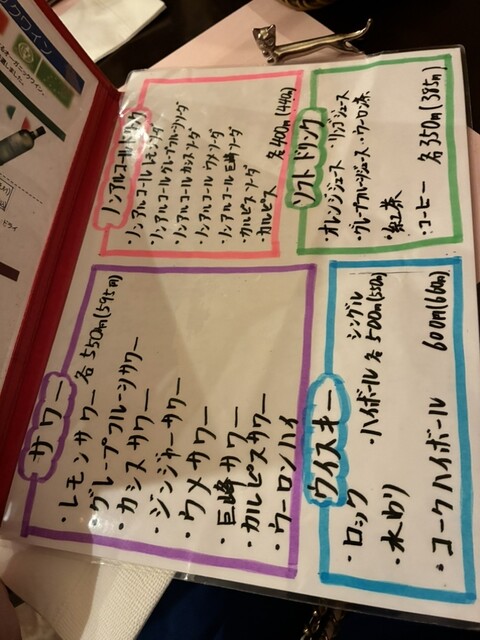 サワー 各550円(595円)
・レモンサワー
・グレープフルーツサワー
・カシスサワー
・ジンジャーサワー
・ウメサワー
・巨峰サワー
・カルピスサワー
・ウーロンハイ
ノンアルコールドリンク
・ノンアルコールレモンソーダ
・ノンアルコールグレープフルーツソーダ
・ノンアルコールカシスソーダ
・ノンアルコールウメソーダ
・ノンアルコール巨峰ソーダ
・カルピスソーダ
・カルピス 各400円(440円)
ウイスキー
シングル
・ロック ・ハイボール 各500円(550円)
・水わり
・コークハイボール 600円(660円)
ソフトドリンク
・オレンジジュース ・リンゴジュース
・グレープフルーツジュース・ウーロン茶
・紅茶
・コーヒー 各350円(385円)